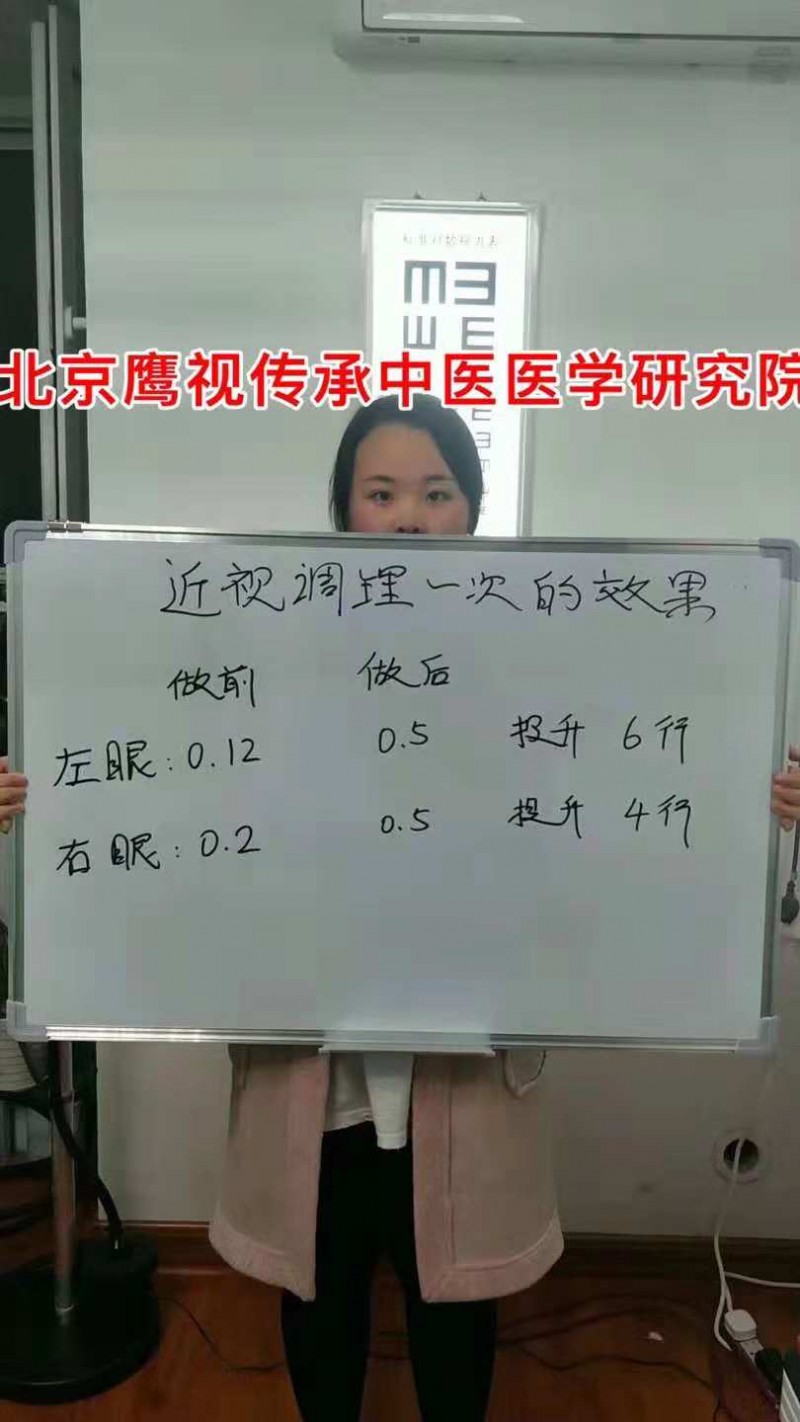 标准对数视力表
北京鹰视传承中医医学研究院
近视调理一次的效果
做前 做后
左眼：0.12 0.5 提升 6行
右眼：0.2 0.5 提升 4行